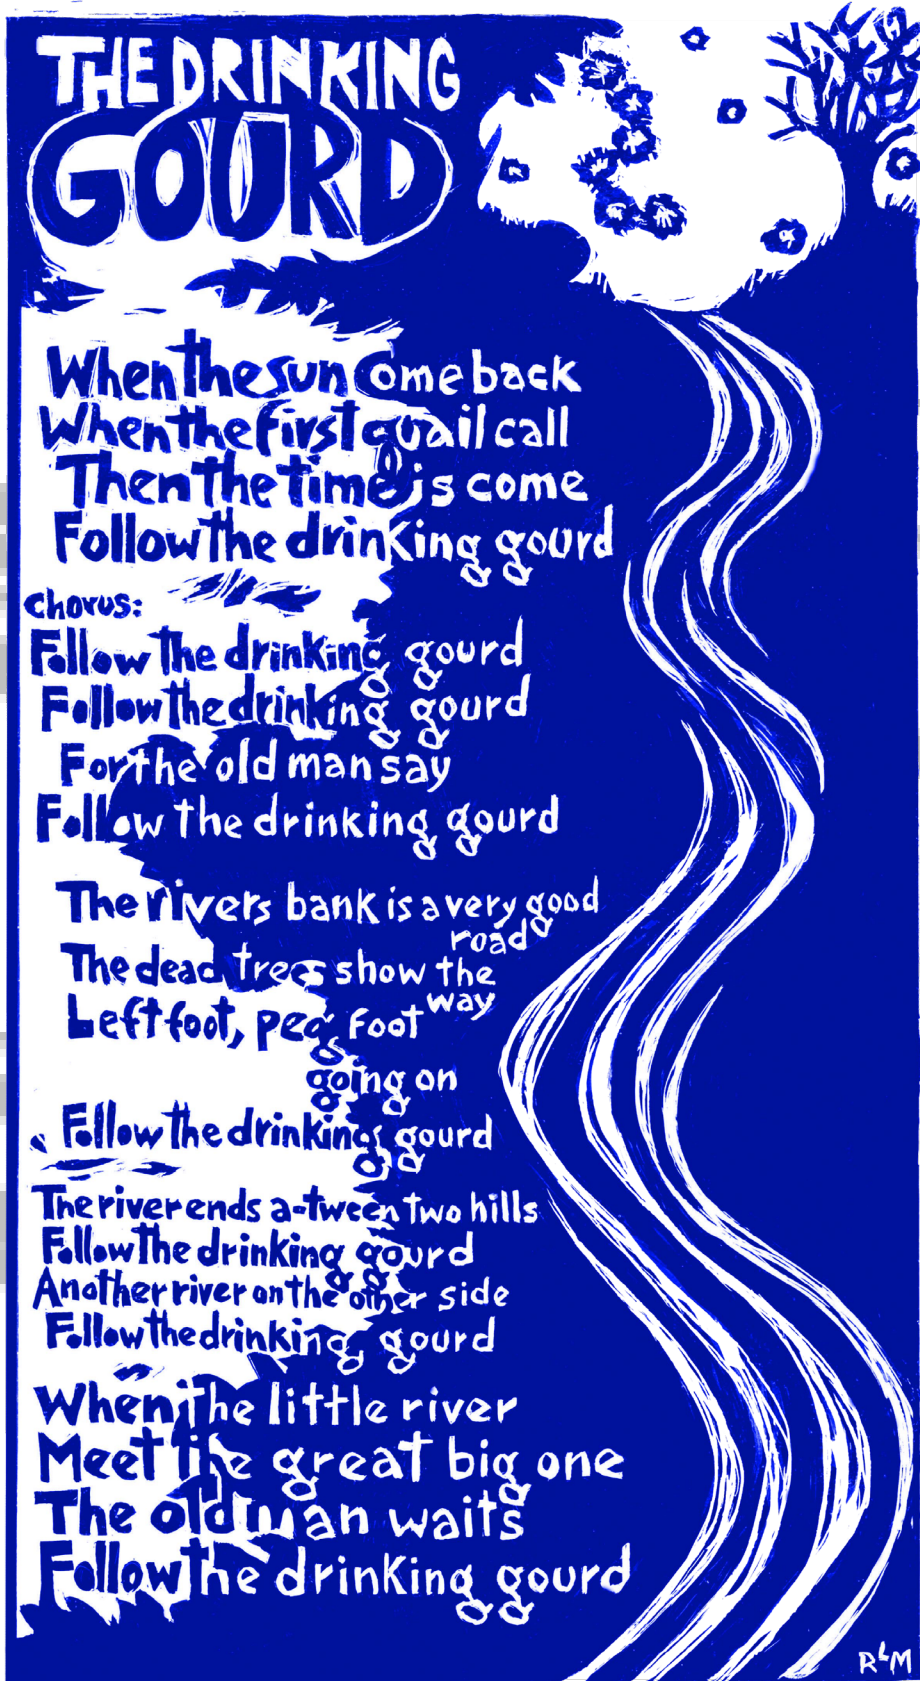 THE DRINKING
GOURD
When the sun come back
When the first quail call
Then the time is come
Follow the drinking gourd
Chorus:
Follow the drinking gourd
Follow the drinking gourd
For the old man say
Follow the drinking gourd
The rivers bank is a very good
road
The dead trees show the
way
Left foot, peg foot
going on
Follow the drinking gourd
The river ends a-tween two hills
Follow the drinking gourd
Another river on the other side
Follow the drinking gourd
When the little river
Meet the great big one
The old man waits
Follow the drinking gourd
RLM